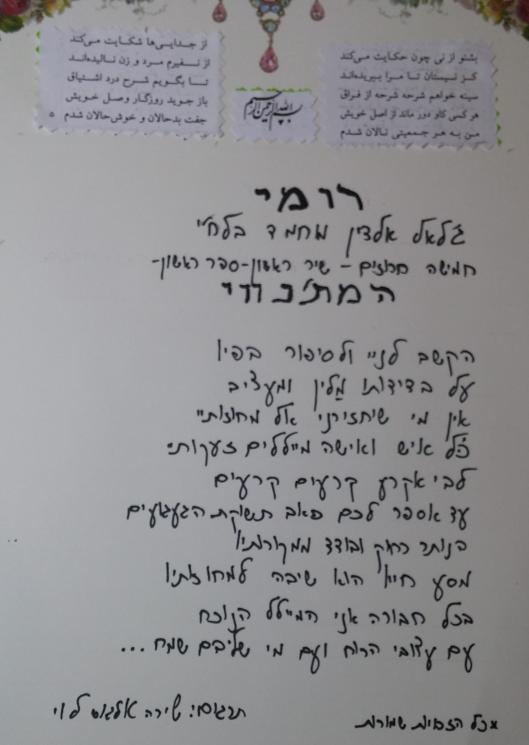 بشنو از نی چون حکایت می‌کند
از جدایی‌ها شکایت می‌کند
کز نیستان تا مرا ببریده‌اند
از نفیرم مرد و زن نالیده‌اند
سینه خواهم شرحه شرحه از فراق
تا بگویم شرح درد اشتیاق
هر کسی کاو دور ماند از اصل خویش
باز جوید روزگار وصل خویش
من به هر جمعیتی نالان شدم
جفت بدحالان و خوش‌حالان شدم ٥
بسم الله الرحمن الرحیم
רומי
ג'לאל אלדין מחמד בלח'י
חמישה חרוזים - שיר ראשון-ספר ראשון-
המת'נווי
הקשב לניי ולסיפור בפיו
על בדידותו מַלין ומעציב
אין מי שיחזירני אל מחוזותיי
כל איש ואישה מייללים זעקותיי
לבי אקרע קרעים קרעים
עד אספר לכם כאב תשוקת הגעגועים
הנותר רחוק ובודד ממקורותיו
מסע חייו הוא שיבה למחוזותיו
בכל חבורה אני המיילל הנוכח
עם עצובי הרוח ועם מי שליבם שמח...
תרגום: שירה אלגוס לוי
*כל הזכויות שמורות